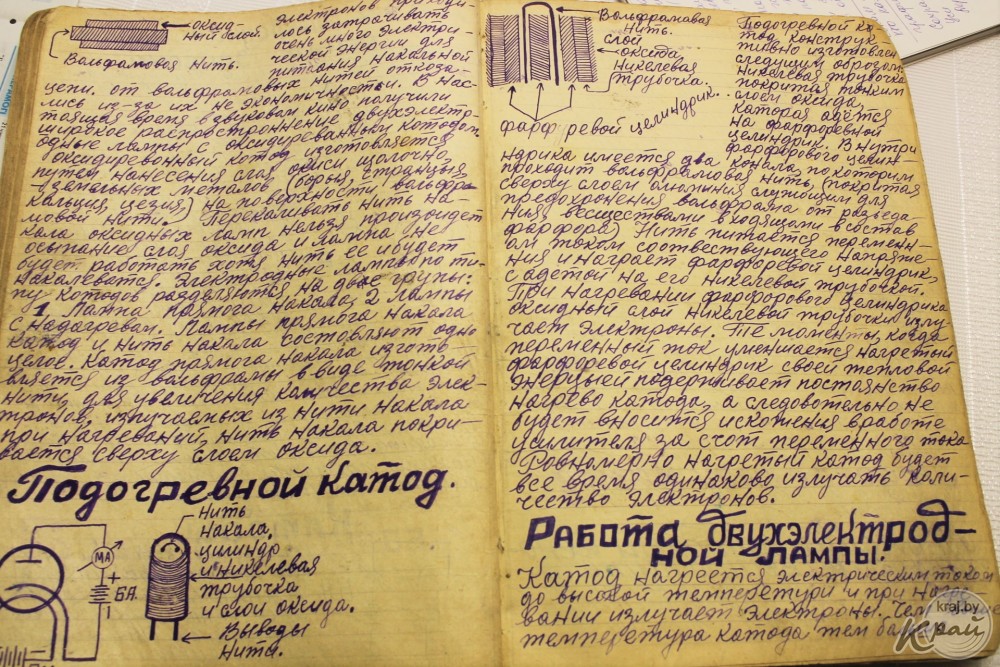 оксид-
ный слой.
Вольфрамовая нить.
электронов приходи-
лось затрачивать
очень много электри-
ческой энергии для
питания накальной
цепи. от вольфрамовых нитей отказа-
лись из-за их не экономичности. В нас-
тоящия время в звуковом кино получили
широкое распростронение двухэлектр-
одные лампы с оксидированным катодом
оксидированный катод изготовляется
путем нанесения слоя окиси щолочно
-земельных металов (борья, странция,
кальция, цезия,) на поверхности вольфра-
мовой нити. Перекаливать нить на-
кала оксидных ламп нельзя произойдет
осыпание слоя оксида и лампа не
будет работать хотя нить ее и будет
накаливатся. Электродные лампы по ти-
пу котодов разделяются на две групы:
1 Лампа прямога накала, 2 лампы
с надогревам. Лампы прямога накала
катод и нить накала состовляют одно
целое. Катод прямога накала изготь-
вляется из вольфрамы в виде тонкой
нити, для увеличения количества элек-
тронов, излучаемых из нити накала
при нагревании, нить накала покри-
вается сверху слоем оксида.
Подогревной катод.
МА
+
БА.
Нить
накала.
цилиндр
и никелевая
трубочка
и слои оксида.
Выводы
нита.
Вольфрамовая
нить.
слой
оксита
никелевая
трубочка.
фарф ревой целиндрик.
Подогревной ка-
тод конструк-
тивно изготовлен
следущим оброзом
никелевая трубочка
покрита тонким
слоем оксида,
каторая адета
на фарфоревной
целиндрик. Внутри
фарфорового целин-
ндрика имеется два конала, по которим
проходит вольфрамовая нить, (покритая
сверху слоем алюминия служищим для
предохронения вольфрама от разьеда-
ния весществами входящими в состав
фарфора) Нить питается перемен-
ом током соотвествующего напряже-
ния и награет фарфоревой целиндрик,
с адетой на его никелевой трубочкой.
При нагревании фарфорового целиндрика
оксидный слой никелевой трубочки излу
чает электроны. Те моменты, когда
переменный ток уменшается нагретый
фарфоревой целиндрик своей тепловой
энергыей подерживает постоянство
нагрево катода, а следовательно не
будет вносится искожения вработе
усилителя за счот переменного тока
Ровномерно нагретый катод будет
все время одинаково излучать коли-
чество электронов.
Работа двухэлектрод-
ной лампы.
Катод нагреется электрическим током
до высокой температури и при нагре
вании излучает электроны. Чем
температура катода тем
kraj.by
Край